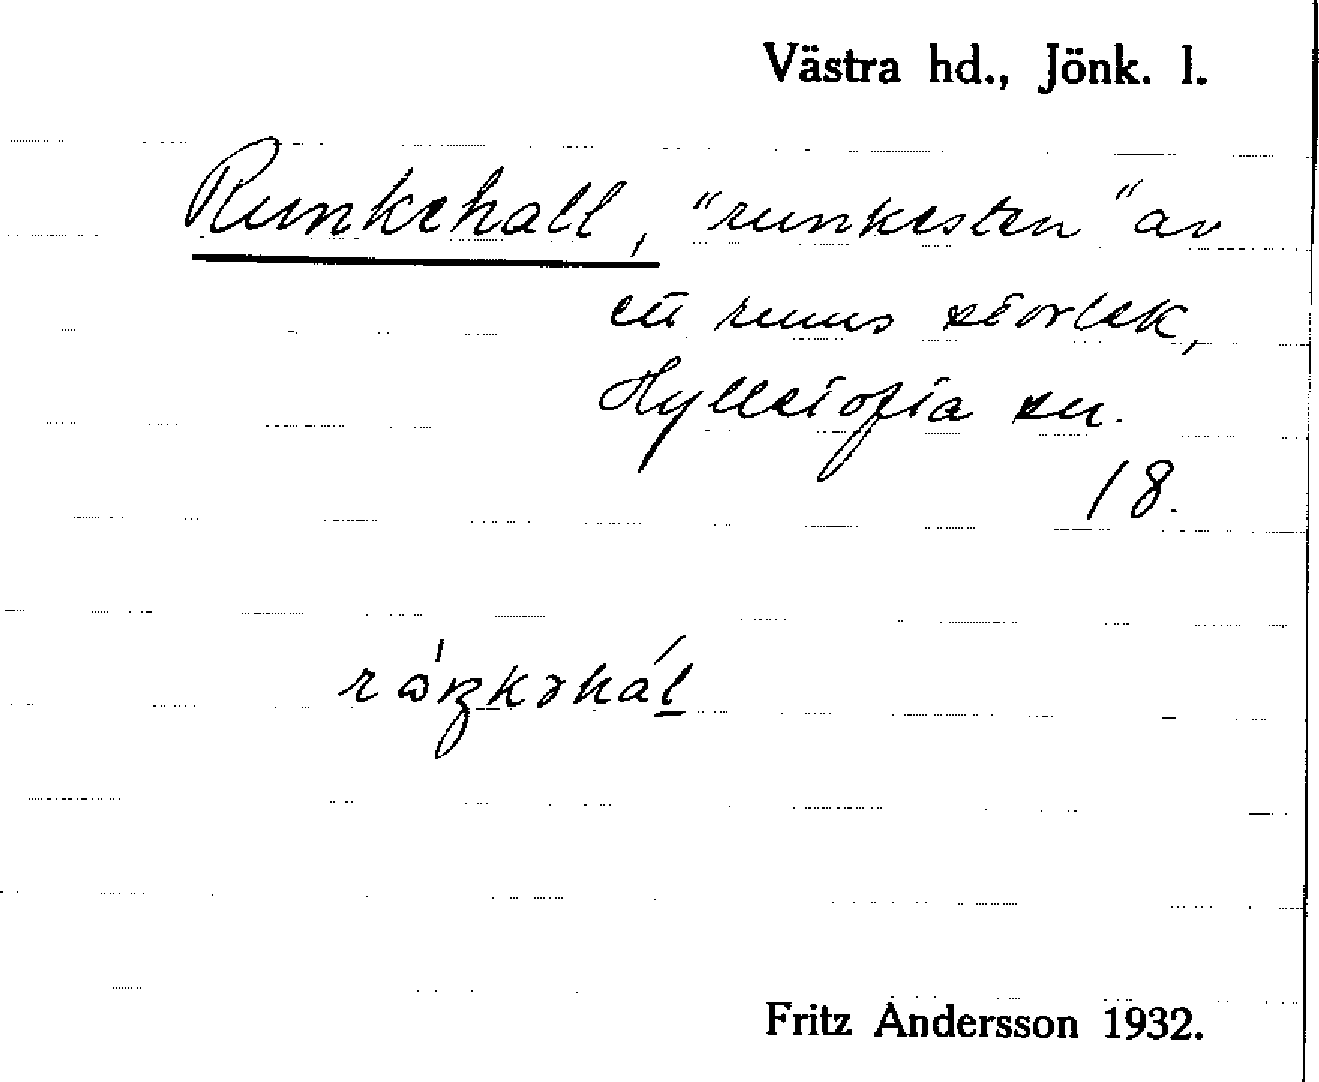 Västra hd., Jönk. l.
Runkehall, "runkesten" av
ett runns storlek,
Hylletofta sn.
18.
Fritz Andersson 1932.